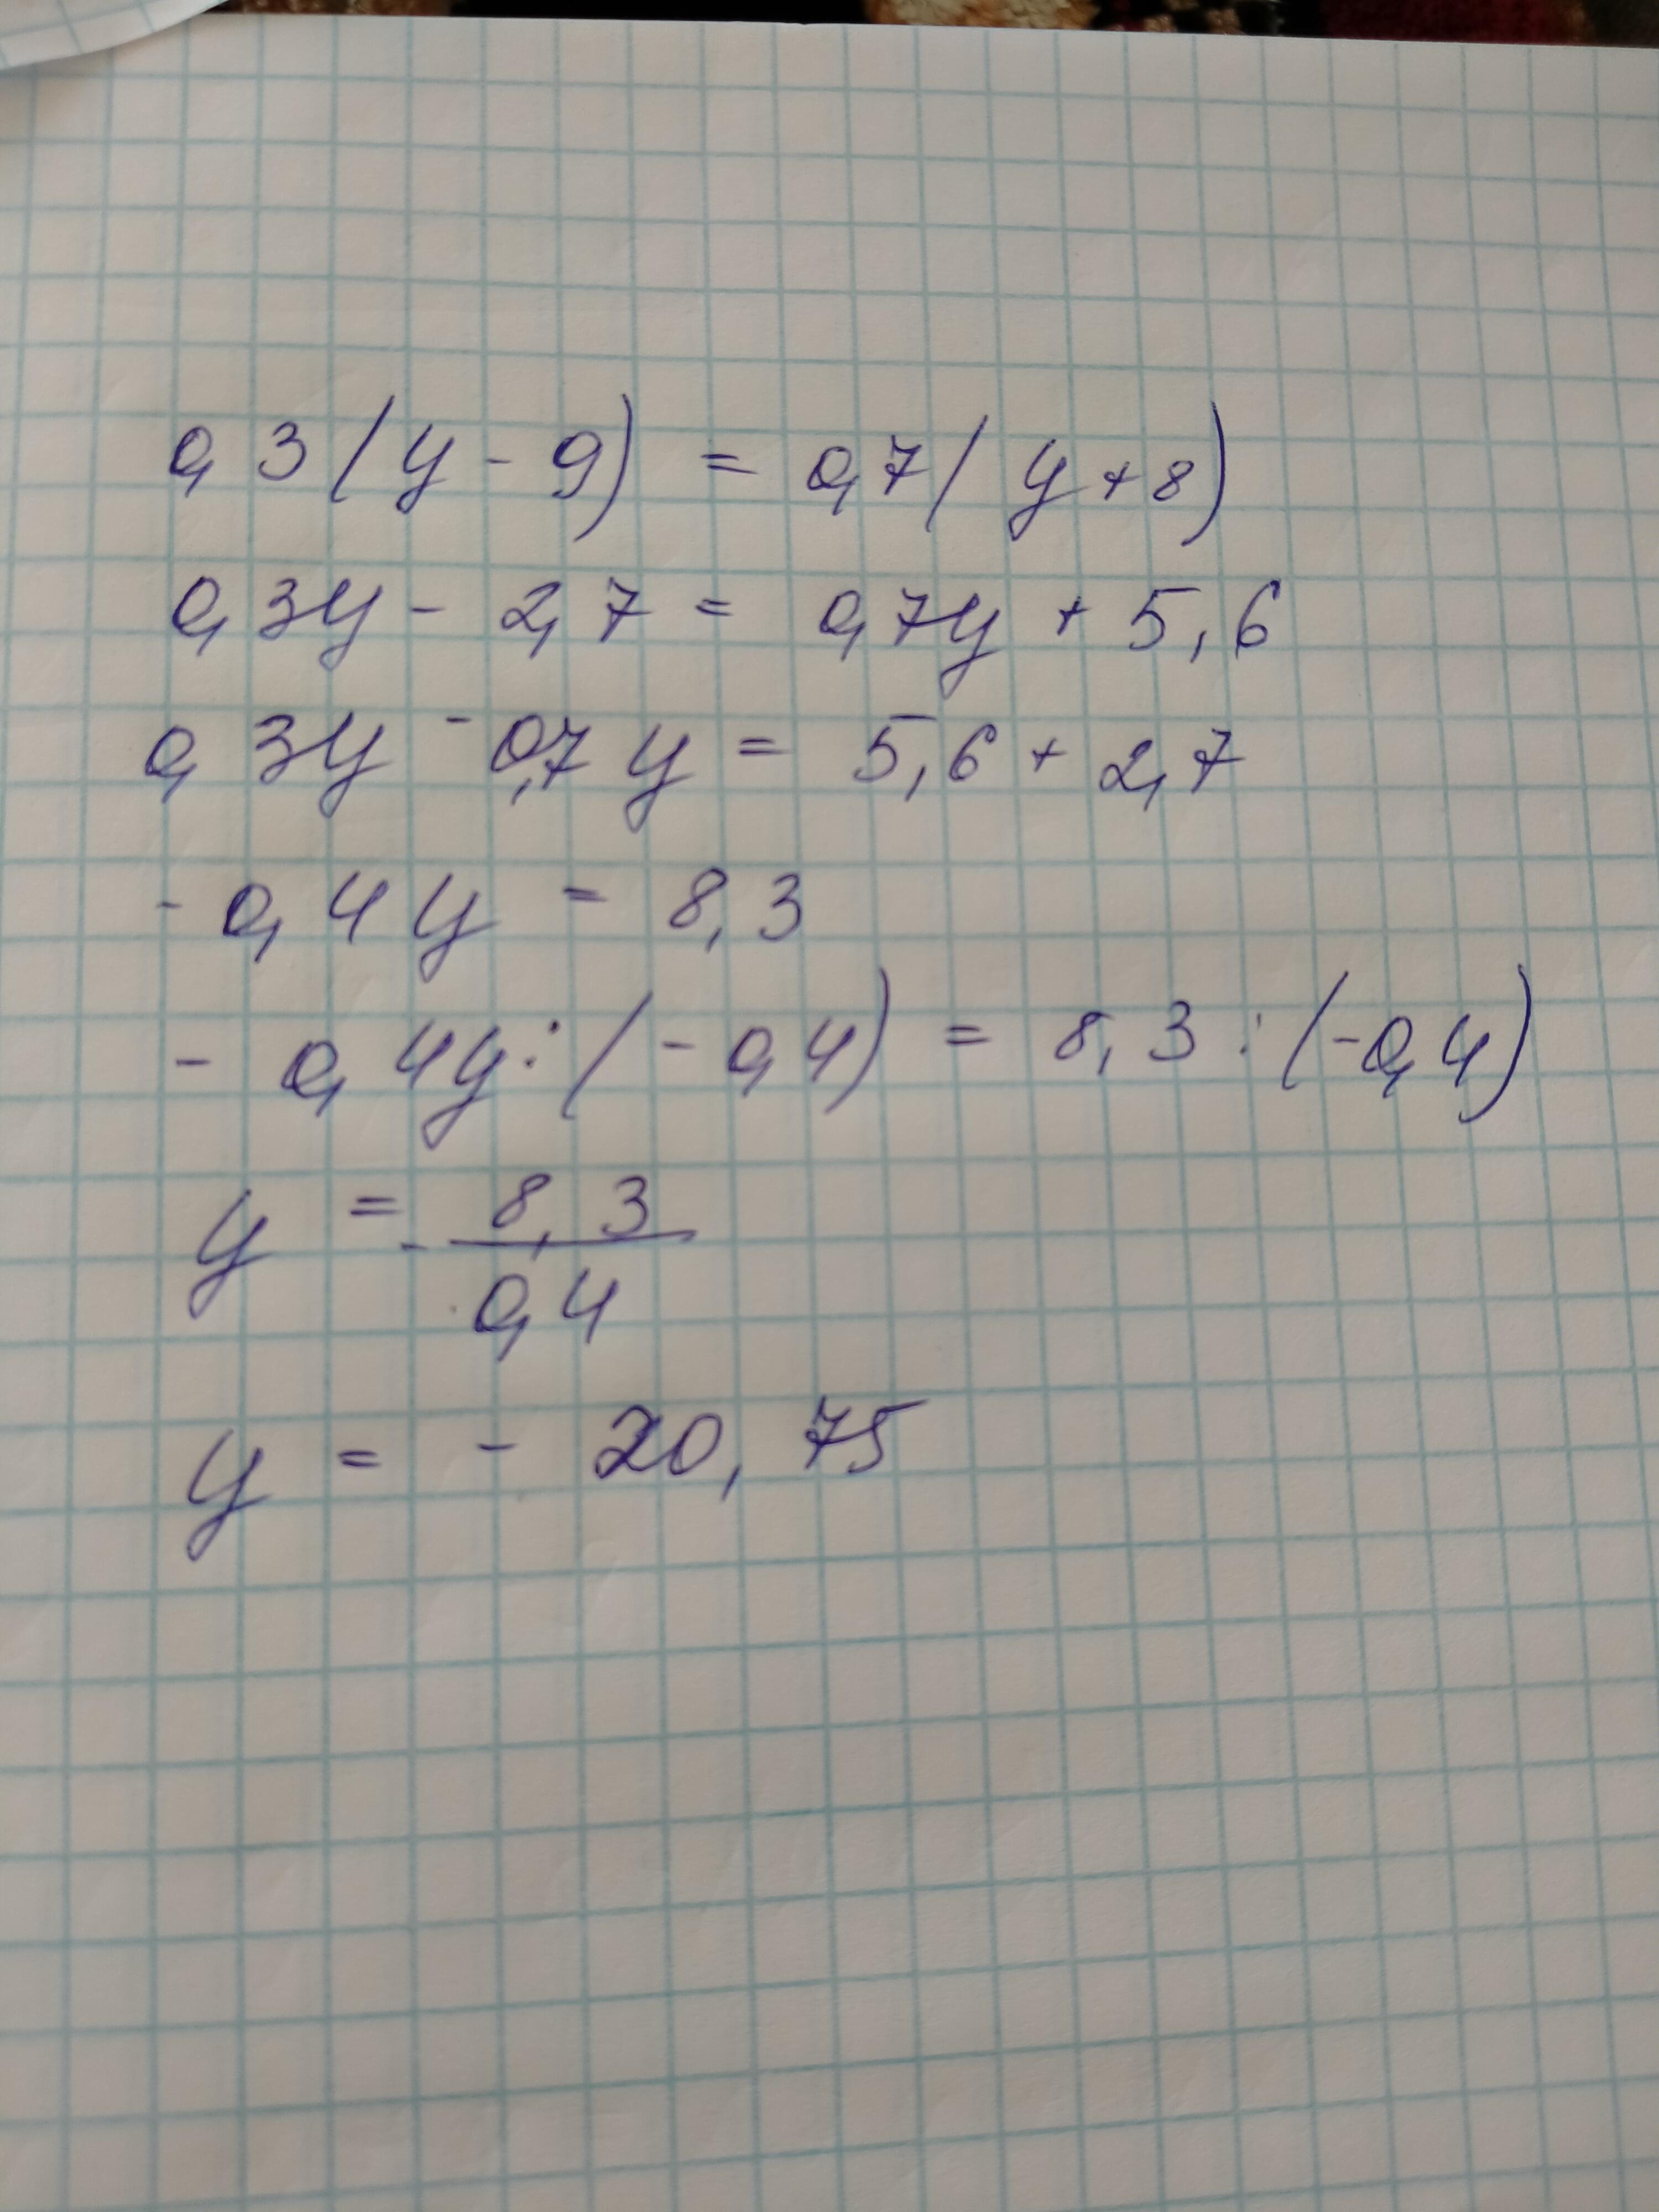 0,3(y-9) = 0,7(y+8)
0,3y - 2,7 = 0,7y + 5,6
0,3y - 0,7y = 5,6 + 2,7
-0,4y = 8,3
-0,4y:(-0,4) = 8,3:(-0,4)
y = - 8,3/0,4
y = - 20,75